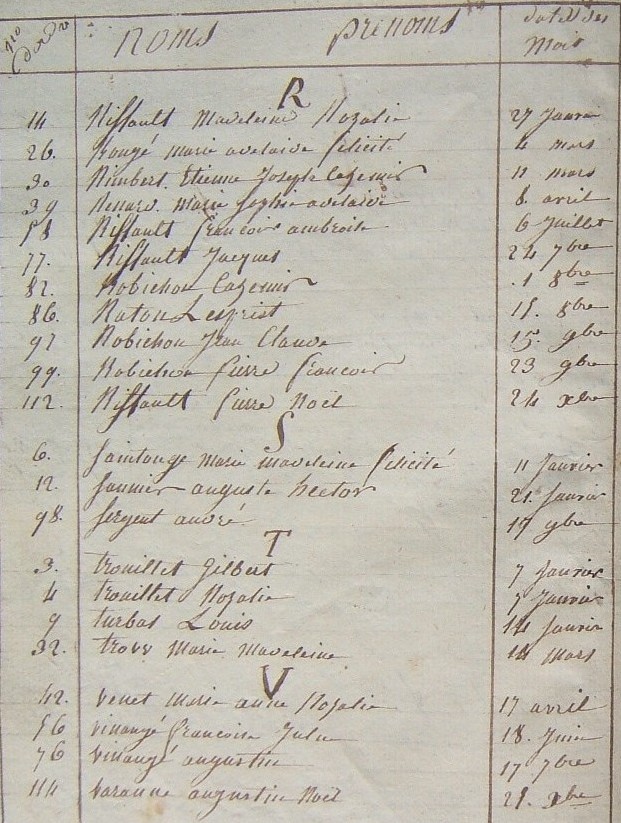 nro Dordre noms prenoms dates des mois
R
14 Riffault Madeleine Rozalie 27 Janvier
26. Rougé marie adelaide félicité 4 mars
30 Rimbert Etienne Joseph Cazemir 11 mars
39 Renard marie Sophie adelaide 8 avril
58 Riffault françoise ambroise 6 Juillet
77. Riffault Jacques 24 7bre
82. Robichon Cazemir 1 8bre
86. Raton Lesprist 15. 8bre
97 Robichon Jean Claude 15. 9bre
99. Robichon pierre françois 23 9bre
112. Riffault pierre Noël 24 xbre
S
6. Saintonge Marie madeleine félicité 11 Janvier
12. Saunier auguste hector 21. Janvier
98. Sergent andré 19 9bre
T
3. trouillet Gilbert 7 Janvier
4 trouillet Rozalie 7 Janvier
9 turbas Louis 14 Janvier
32. Marie Madeleine 14 Mars
V
42. venet marie anne Rozalie 17 avril
56 vinangé françoise Julie 18. Juin
76 vinangé augustin 17 7bre
114 varanne augustin Noël 25. xbre